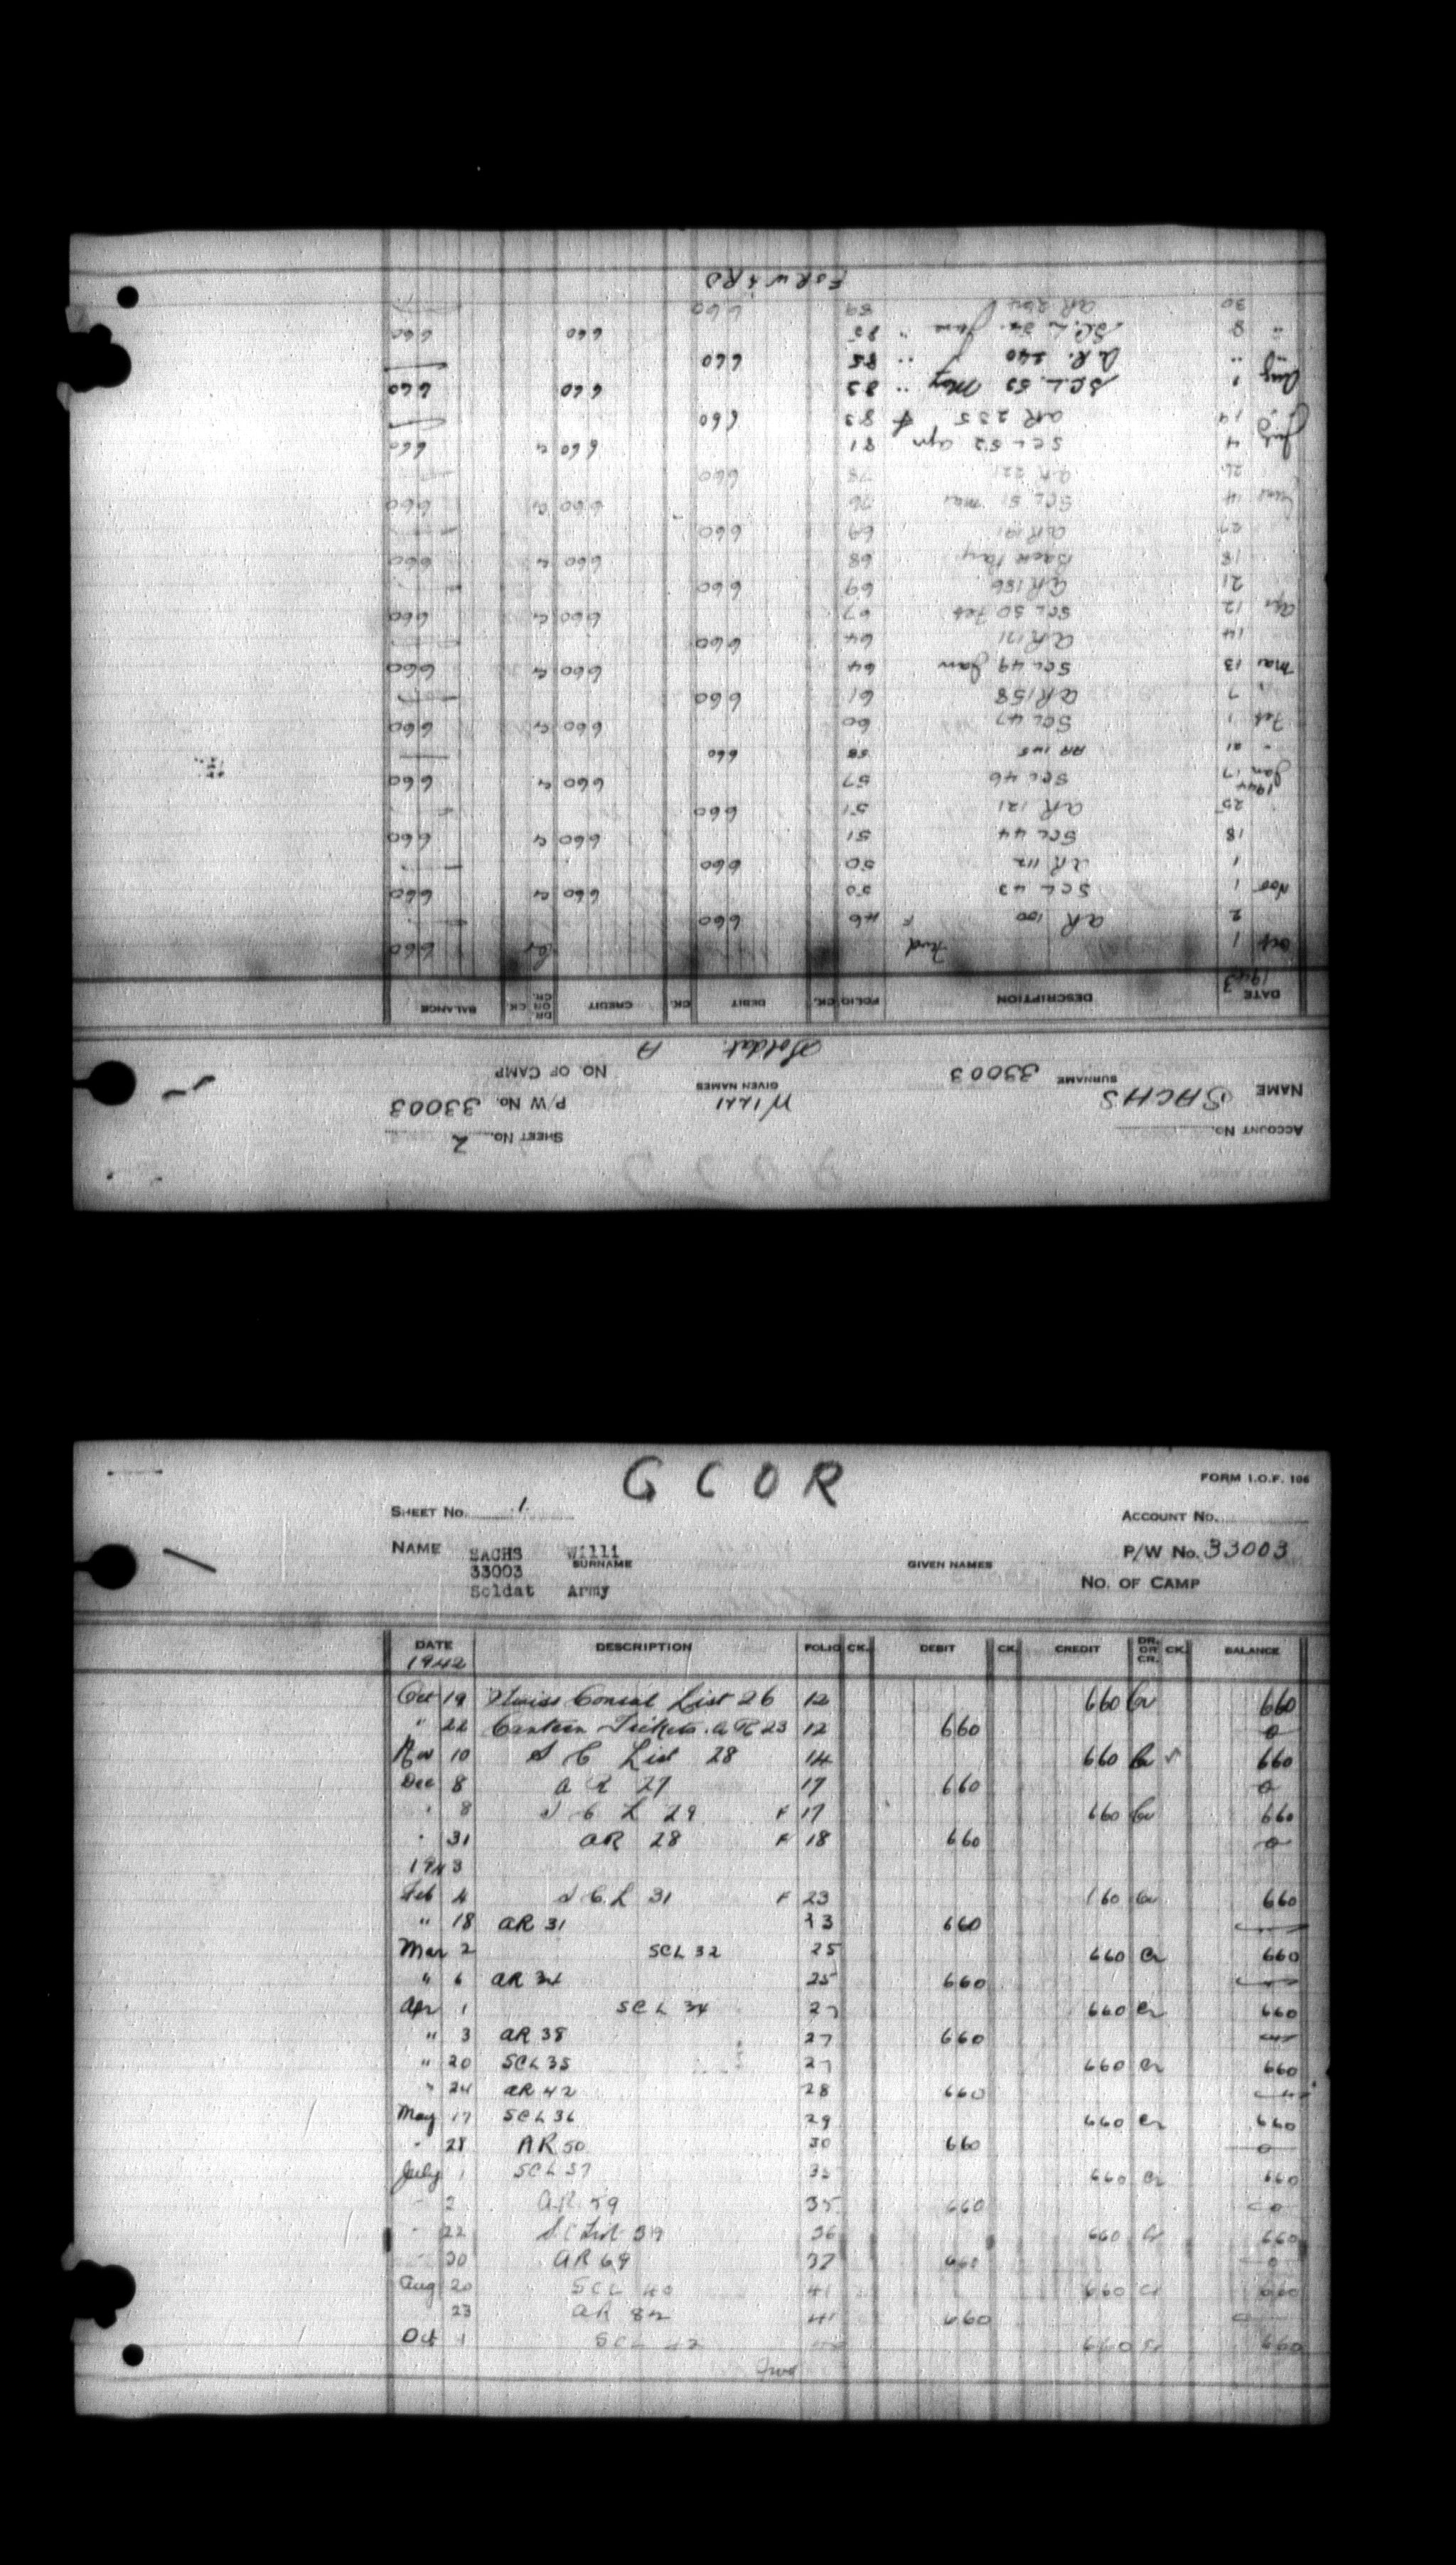 ACCOUNT No.
SHEET No. 2
NAME SACHS WILLI P/W No. 33003
SURNAME 33003 GIVEN NAMES NO. OF CAMP
Soldat A
DATE DESCRIPTION FOLIO CK. DEBIT CK. CREDIT DR. OR CR. CK. BALANCE
1943
Oct 1 Fwd Cr 660
2 AR 100 F 46 660
Nov 1 SCL 43 50 660 Cr 660
1 AR 112 50 660
18 SCL 44 51 660 Cr 660
25 AR 121 51 660
1944
Jan 17 SCL 46 57 660 Cr 660
" 21 AR 145 58 660
Feb 1 SCL 47 60 660 Cr 660
" 7 AR 158 61 660
Mar 13 SCL 49 Jan 64 660 Cr 660
14 AR 171 64 660
Apr 12 SCL 50 Feb 67 660 Cr 660
21 AR 186 69 660
18 Back Pay 68 660 Cr 660
27 AR 191 69 660
June 4 SCL 51 Mar 76 660 Cr 660
26 AR 221 78 660
July 4 SCL 52 Apr 81 660 Cr 660
14 AR 235 F 83 660
Aug 1 SCL 53 May " 83 660 660
" " A.R. 240 " 85 660
" 8 SCL 54 June " 85 660 660
30 AR 89 660
FORWARD
G C O R
FORM I.O.F. 106
SHEET No. 1 ACCOUNT No.
NAME SACHS Willi P/W No. 33003
33003 SURNAME GIVEN NAMES
Soldat Army NO. OF CAMP
DATE DESCRIPTION FOLIO CK. DEBIT CK. CREDIT DR. OR CR. CK. BALANCE
1942
Oct 19 Swiss Consul List 26 12 660 Cr 660
" 22 Canteen Tickets A R 23 12 660 0
Nov 10 S C List 28 14 660 Cr ✓ 660
Dec 8 A R 27 17 660 0
" 8 S C L 29 F 17 660 Cr 660
" 31 AR 28 F 18 660 0
1943
Feb 4 S C L 31 F 23 660 Cr 660
" 18 AR 31 23 660
Mar 2 SCL 32 25 660 Cr 660
" 6 AR 34 25 660
Apr 1 SCL 34 27 660 Cr 660
" 3 AR 38 27 660
" 20 SCL 35 27 660 Cr 660
" 24 AR 42 28 660
May 17 SCL 36 29 660 Cr 660
" 28 AR 50 30 660 0
July 1 SCL 37 35 660 Cr 660
" 2 AR 59 35 660 0
" 22 S.C List 39 36 660 Cr 660
" 30 AR 69 37 660 0
Aug 20 SCL 40 41 660 Cr 660
23 AR 82 41 660 0
Oct 1 SCL 42 660 Cr 660
Fwd